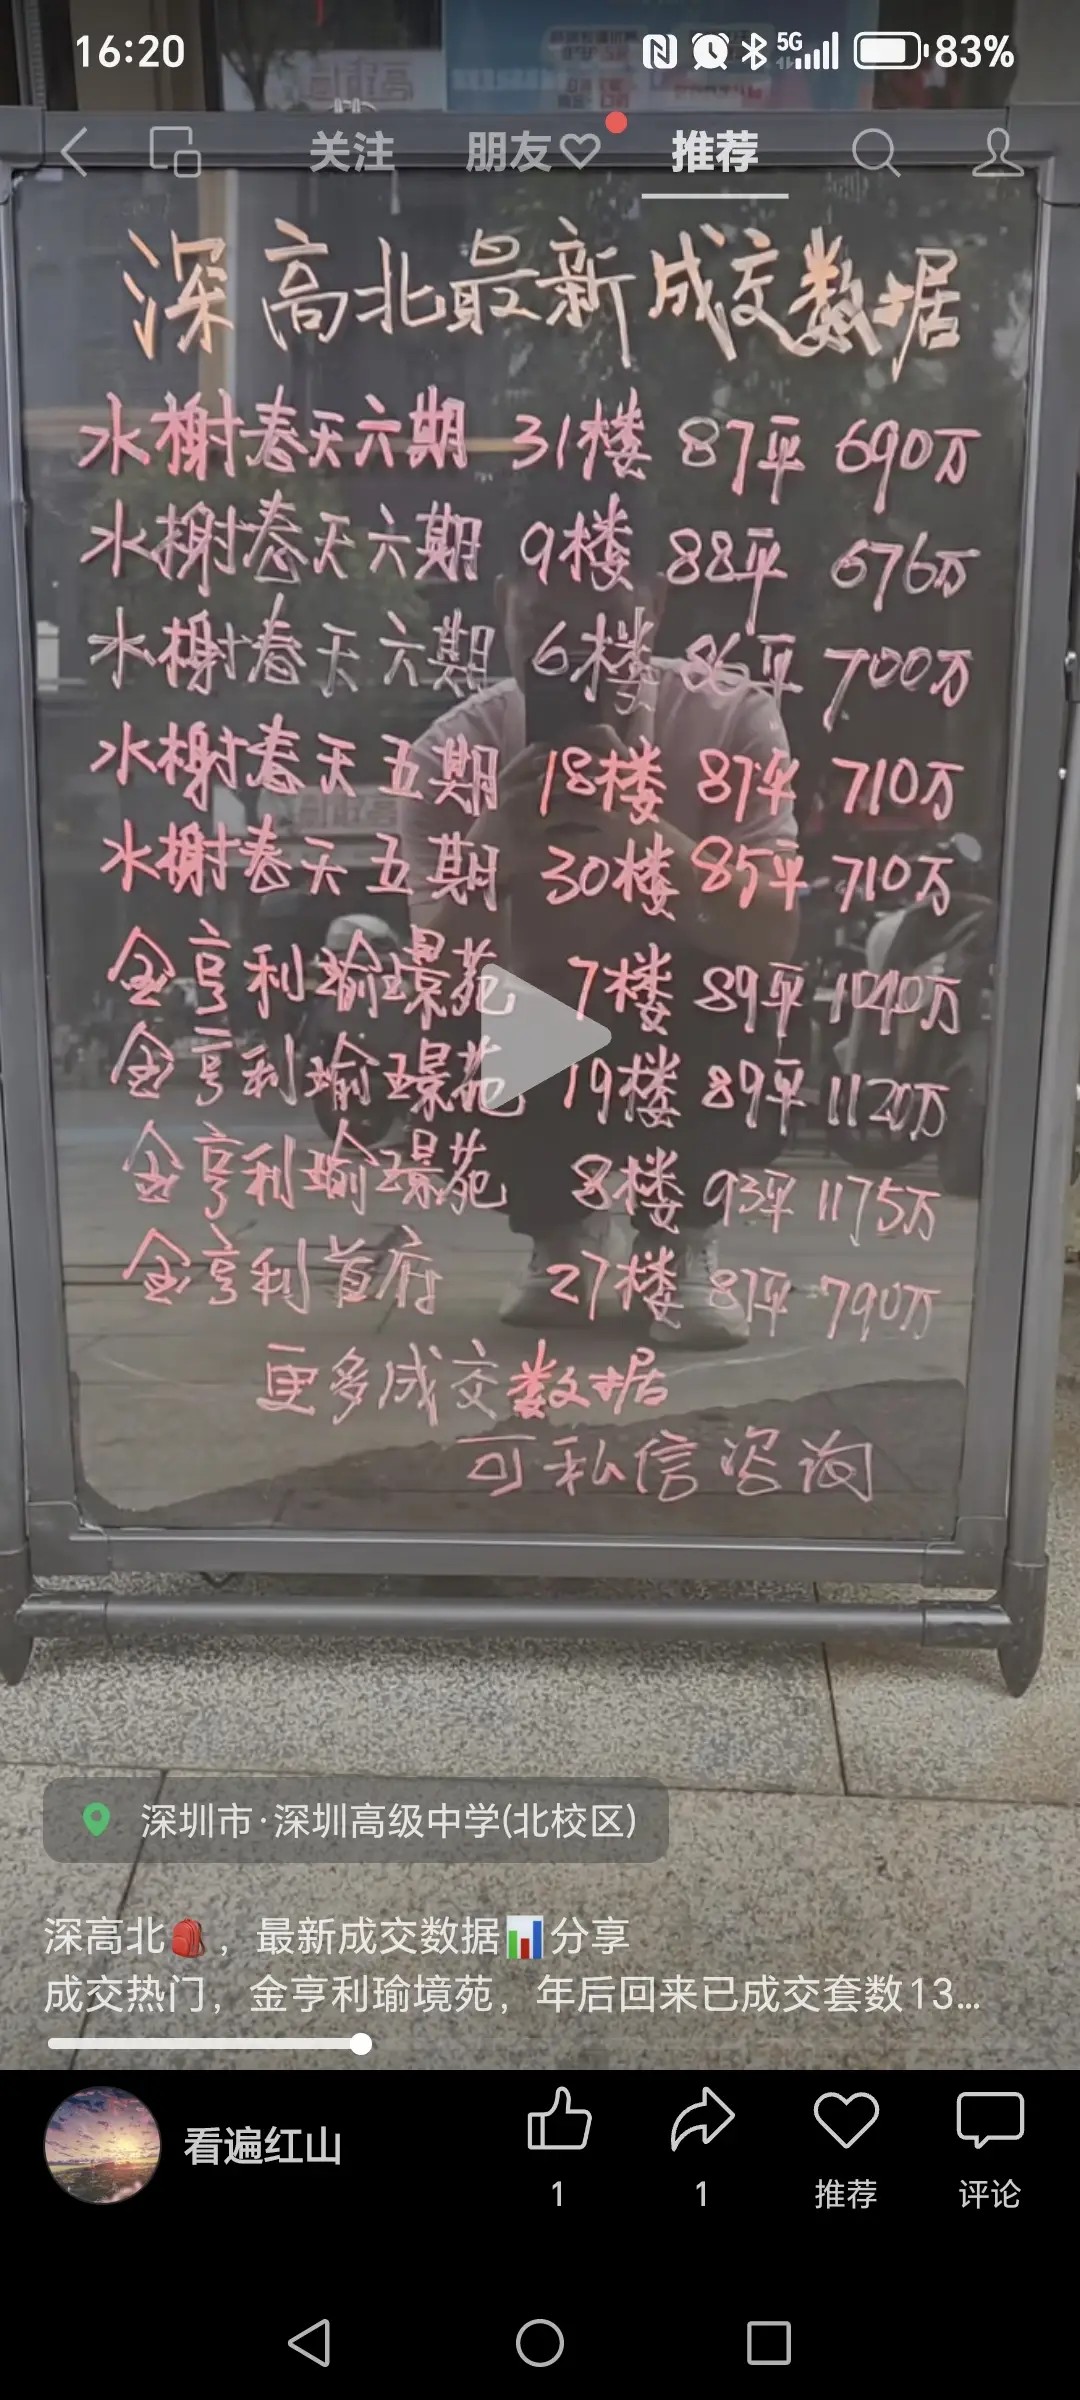 16:20 5G 83%
关注 朋友 推荐
深高北最新成交数据
水榭春天六期 31楼 87平 690万
水榭春天六期 9楼 88平 676万
水榭春天六期 6楼 86平 700万
水榭春天五期 18楼 87平 710万
水榭春天五期 30楼 85平 710万
金亨利瑜璟苑 7楼 89平 1040万
金亨利瑜璟苑 19楼 89平 1120万
金亨利瑜璟苑 8楼 93平 1175万
金亨利首府 27楼 87平 790万
更多成交数据
可私信咨询
深圳市·深圳高级中学(北校区)
深高北🎒，最新成交数据📊分享
成交热门，金亨利瑜境苑，年后回来已成交套数13...
看遍红山
1 1 推荐 评论